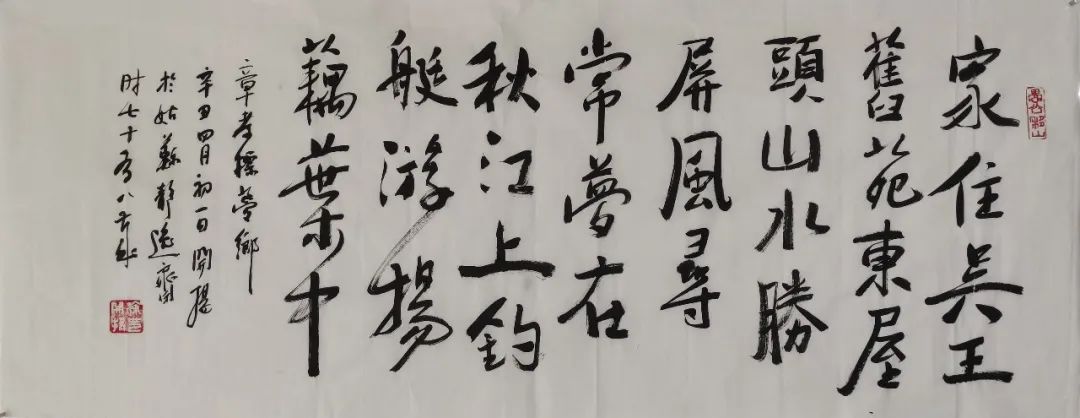 家住吴王
舊苑東屋
頭山水勝
屏風尋
常夢在
秋江上釣
艇游揚
藕葉中
章孝標夢鄉
辛丑四月初一日開揚
於姑蘇靜齋
时七十有八